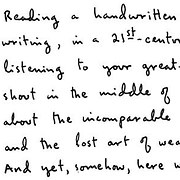 Reading a handwritten
writing, in a 21st-centu
listening to your great-
shout in the middle of
about the incomparable
and the lost art of wea
And yet, somehow, here w